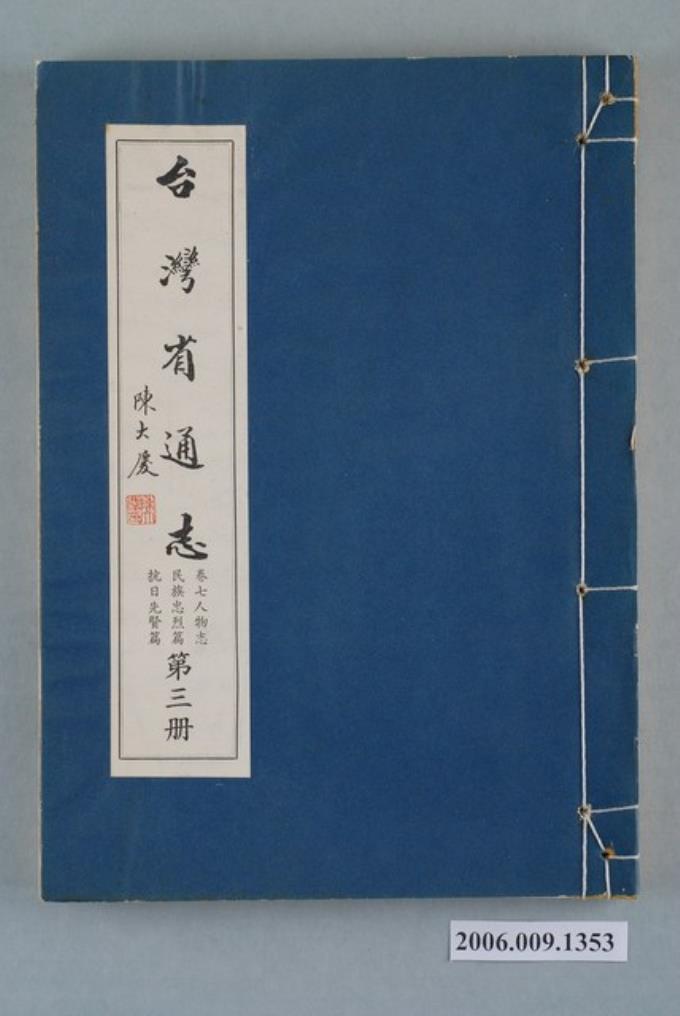 台灣省通志
陳大慶
卷七人物志
民族忠烈篇
抗日先賢篇
第三册
2006.009.1353